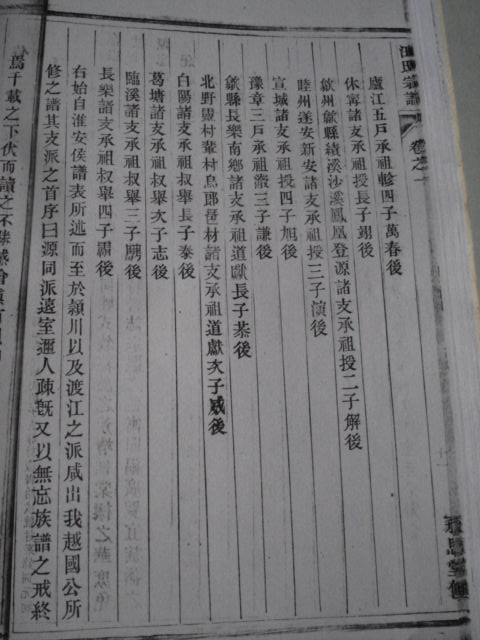 宗譜 卷之一
廬江五戶承祖軫四子萬春後
休寧諸支承祖授長子翊後
歙州歙縣績溪沙溪鳳凰登源諸支承祖授二子解後
睦州遂安新安諸支承祖授三子演後
宣城諸支承祖授四子旭後
豫章三戶承祖三子謙後
歙縣長樂南鄉諸支承祖道獻長子恭後
北野靈村葦村烏郎邑材諸支承祖道獻次子威後
白陽諸支承祖叔舉長子泰後
葛塘諸支承祖叔舉次子志後
臨溪諸支承祖叔舉三子勵後
長樂諸支承祖叔舉四子霸後
右始自淮安侯譜表所述而至於潁川以及渡江之派咸出我越國公所
修之譜其支派之首序曰源同派遠室邇人疎旣又以無忘族譜之戒終
焉千載之下伏而讀之不